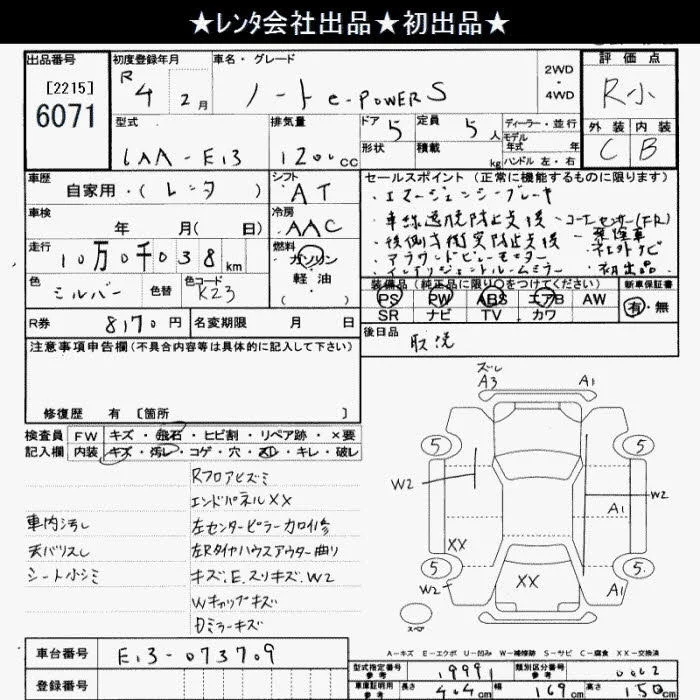 ★レンタ会社出品★初出品★
出品番号
[2215]
6071
初度登録年月
R4 2月
車名・グレード
ノートe-POWER S
2WD・4WD
評価点
R小
外装 内装
C B
型式
6AA-E13
排気量
1200cc
ドア 5
定員 5人
形状
積載 kg
ディーラー・並行
モデル年式 年
ハンドル 左・右
車歴
自家用・(レンタ)
シフト
AT
冷房
AAC
車検
年 月(日)
走行
10万0千038km
燃料
ガソリン
軽油
( )
色
シルバー
色替
色コード
K23
セールスポイント(正常に機能するものに限ります)
・エマージェンシーブレーキ
・車線逸脱防止支援 ・コーナーセンサー(FR)
・後側方衝突防止支援 ・禁煙車
・アラウンドビューモニター ・ネクストナビ
・インテリジェントルームミラー ・初出品
装備品(純正品に限り○をつけてください)
PS PW ABS エアB AW
SR ナビ TV カワ
新車保証書
有・無
R券 8170円
名変期限 月 日
後日品
取説
注意事項申告欄(不具合内容等は具体的に記入して下さい)
修復歴 有 〔箇所 〕
検査員記入欄
FW キズ・飛石・ヒビ割・リペア跡・×要
内装 キズ・汚レ・コゲ・穴・スレ・キレ・破レ
Rフロアヒズミ
エンドパネルXX
車内汚れ
左センターピラーカロイ修
天バリスレ
左Rタイヤハウスアウター曲り
シート小シミ
キズ.E.スリキズ.W2
Wキャップキズ
Dミラーキズ
ズレ
A3 A1
5 5
W2 W2
A1
XX
5 5
XX
W2 A1
スペア
A-キズ E-エクボ U-凹み W-補修跡 S-サビ C-腐食 XX-交換済
車台番号
E13-073709
登録番号
型式指定番号 参考
19991
類別区分番号 参考
0002
車庫証明用 参考
長さ 404cm
幅 169cm
高さ 150cm